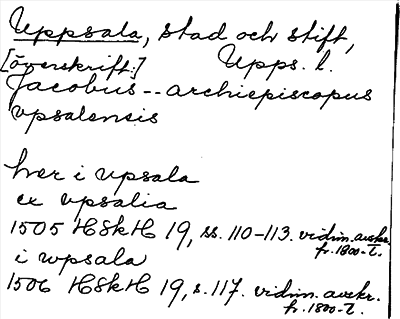 Uppsala, stad och stift,
[överskrift:] Upps. l.
Jacobus -- archiepiscopus
vpsalensis
her i vpsala
ex vpsalia
1505 HSkH 19, ss. 110-113. vidim. avskr.
fr. 1800-t.
i wpsala
1506 HSkH 19, s. 117. vidim. avskr.
fr. 1800-t.